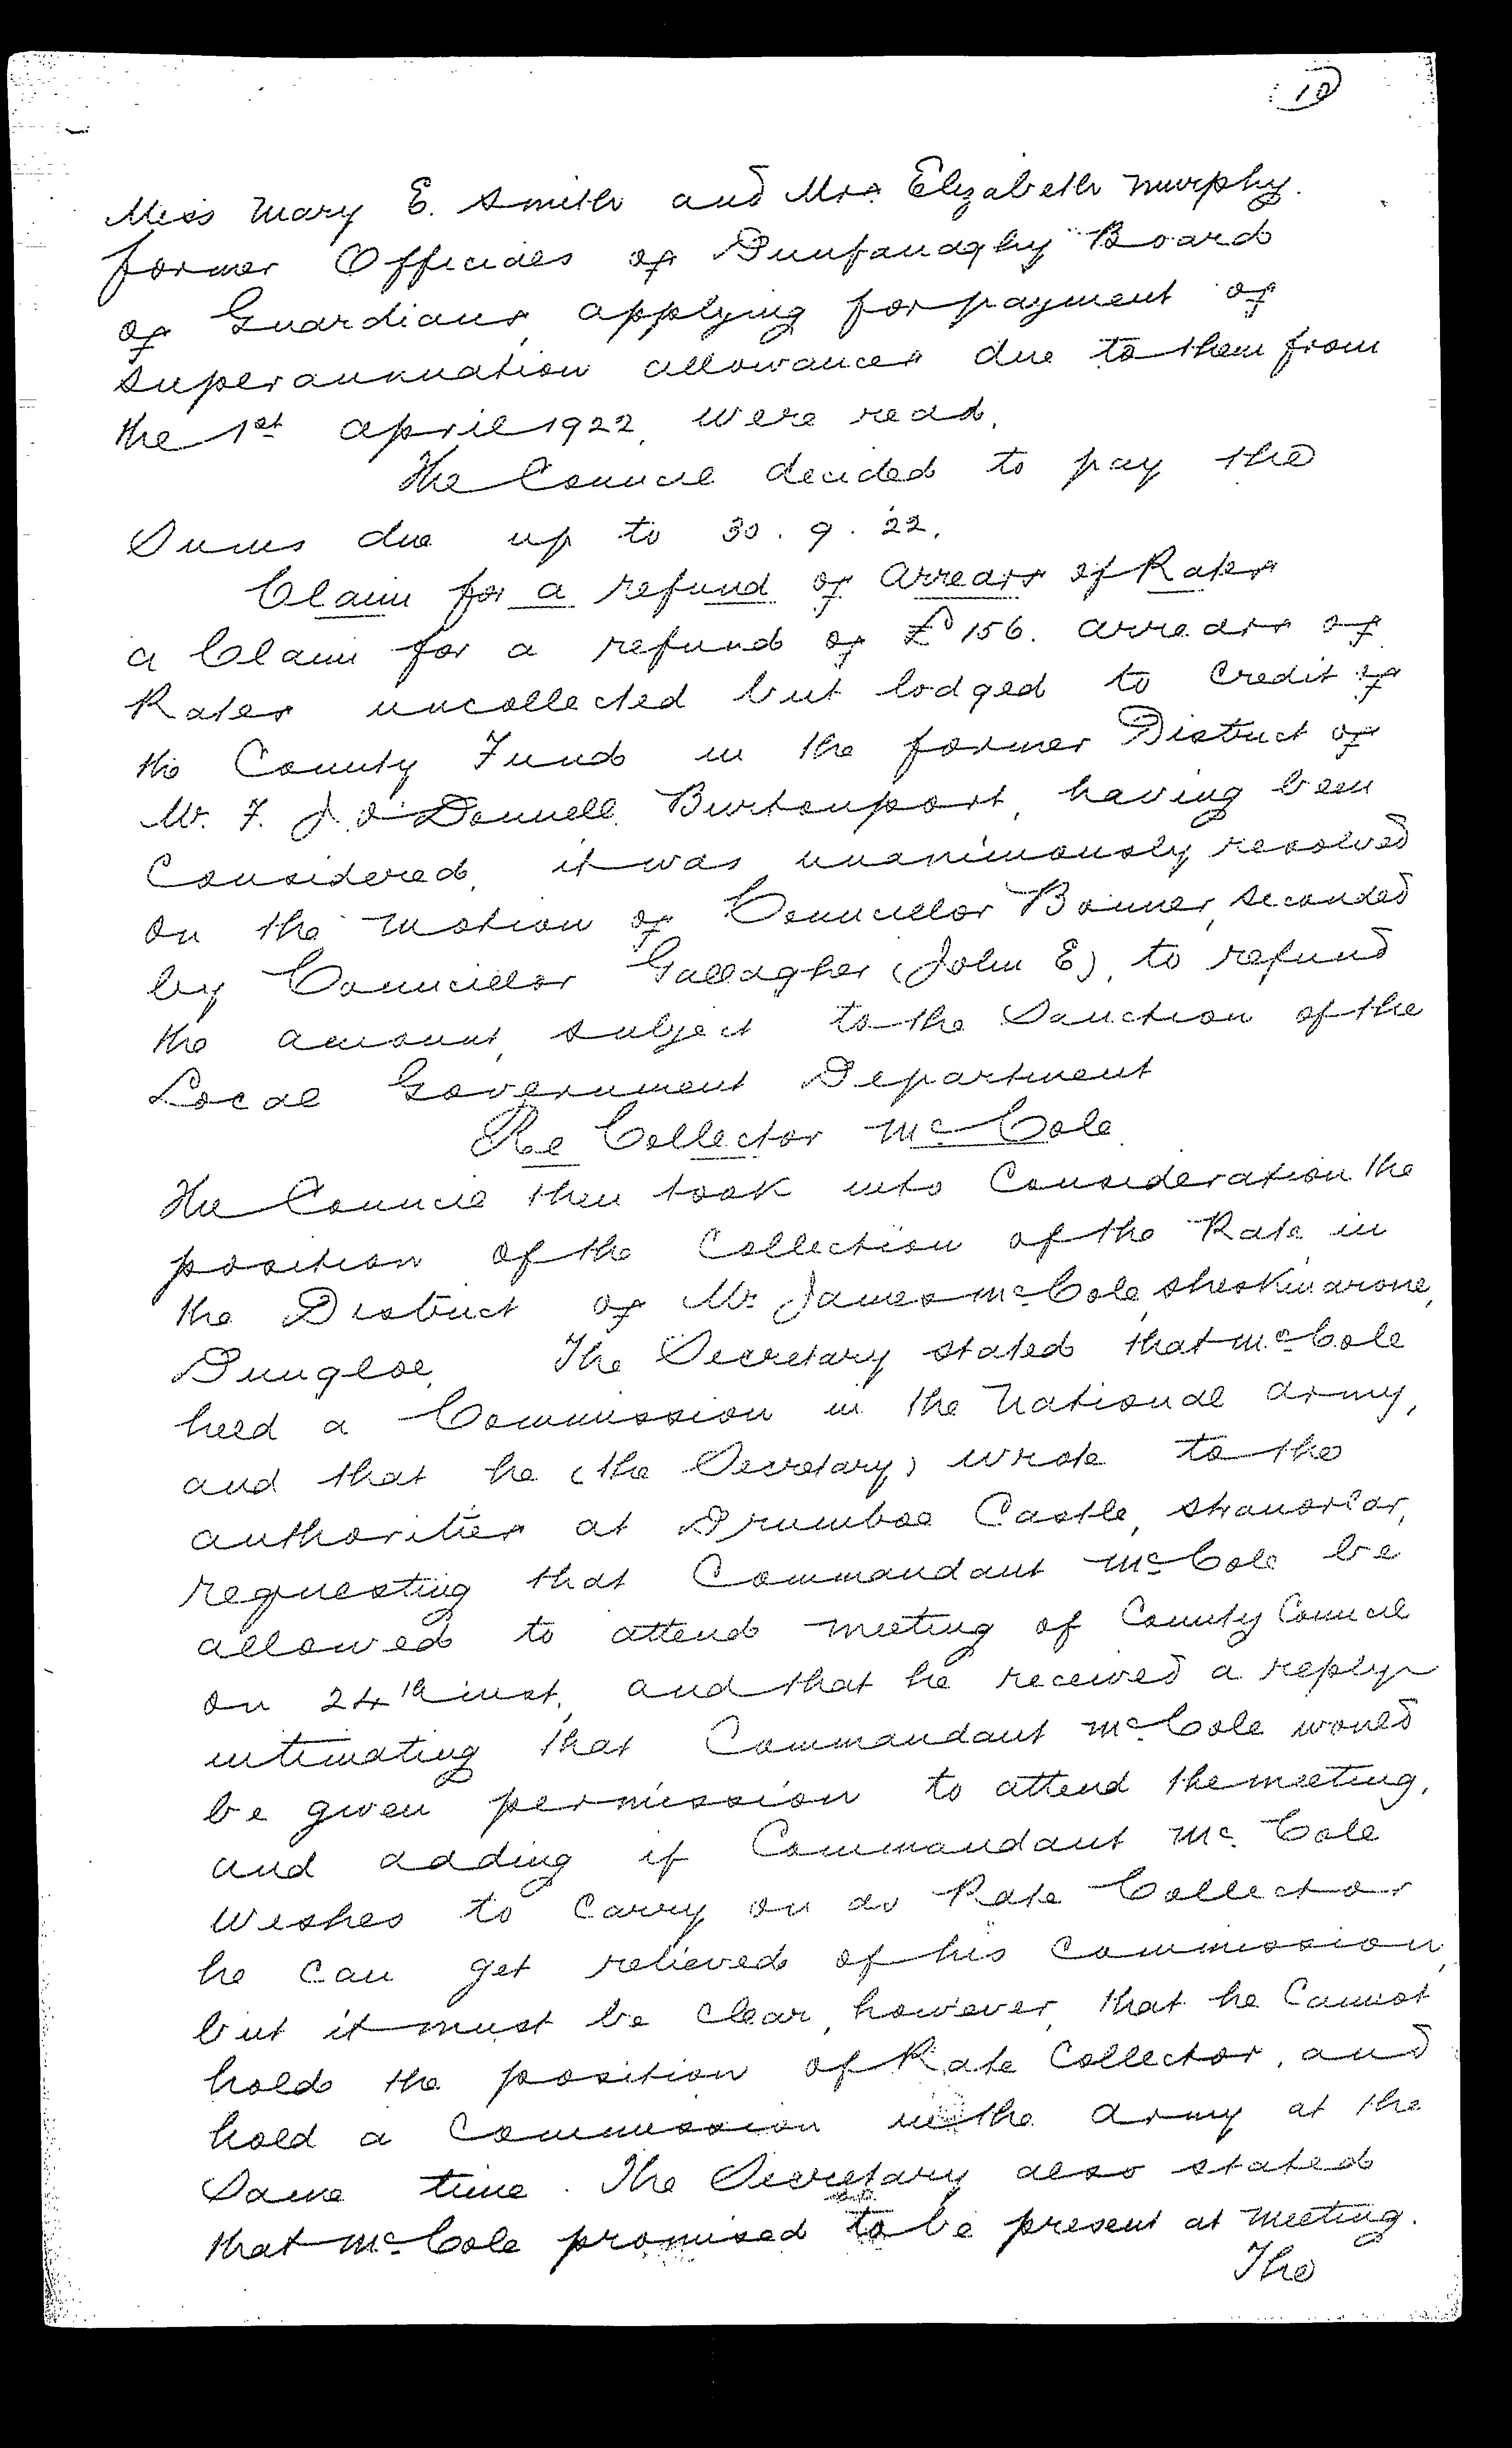 10
Miss Mary E. Smith and Mrs. Elizabeth Murphy.
former Officials of Dunfanaghy Board
of Guardians, applying for payment of
superannuation allowances due to them from
the 1st April 1922, were read.
The Council decided to pay the
Sums due up to 30.9.'22.
Claim for a refund of Arrears of Rates
a Claim for a refund of £156. arrears of
Rates uncollected but lodged to credit of
the County Fund in the former District of
Mr. F. J. O'Donnell, Burtonport, having been
Considered, it was unanimously resolved
on the motion of Councillor Bonner, seconded
by Councillor Gallagher (John E), to refund
the amount, subject to the Sanction of the
Local Government Department
Re Collector McCole
The Council then took into Consideration the
position of the Collection of the Rate in
the District of Mr. James McCole, Sheskinarone,
Dungloe. The Secretary stated that McCole
held a Commission in the National Army,
and that he (the Secretary) wrote to the
authorities at Drumboe Castle, Stranorlar,
requesting that Commandant McCole be
allowed to attend meeting of County Council
on 24th inst, and that he received a reply
intimating that Commandant McCole would
be given permission to attend the meeting,
and adding if Commandant McCole
wishes to carry on as Rate Collector
he can get relieved of his commission,
but it must be clear, however, that he Cannot
hold the position of Rate Collector, and
hold a Commission in the Army at the
Same time. The Secretary also stated
that McCole promised to be present at meeting.
The